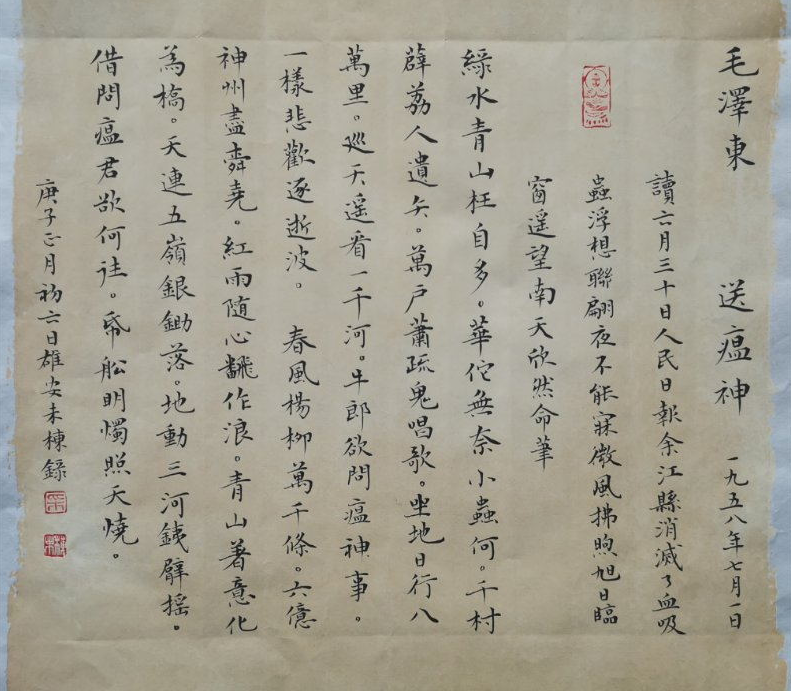 毛澤東 送瘟神 一九五八年七月一日
讀六月三十日人民日報余江縣消滅了血吸
蟲浮想聯翩夜不能寐微風拂煦旭日臨
窗遥望南天欣然命筆
綠水青山枉自多。華佗無奈小蟲何。千村
薜荔人遺矢。萬户蕭疏鬼唱歌。坐地日行八
萬里。巡天遥看一千河。牛郎欲問瘟神事。
一樣悲歡逐逝波。 春風楊柳萬千條。六億
神州盡舜堯。紅雨隨心飜作浪。青山着意化
為橋。天連五嶺銀鋤落。地動三河鐵臂摇。
借問瘟君欲何往。帋船明燭照天燒。
庚子正月初六日雄安未棟錄